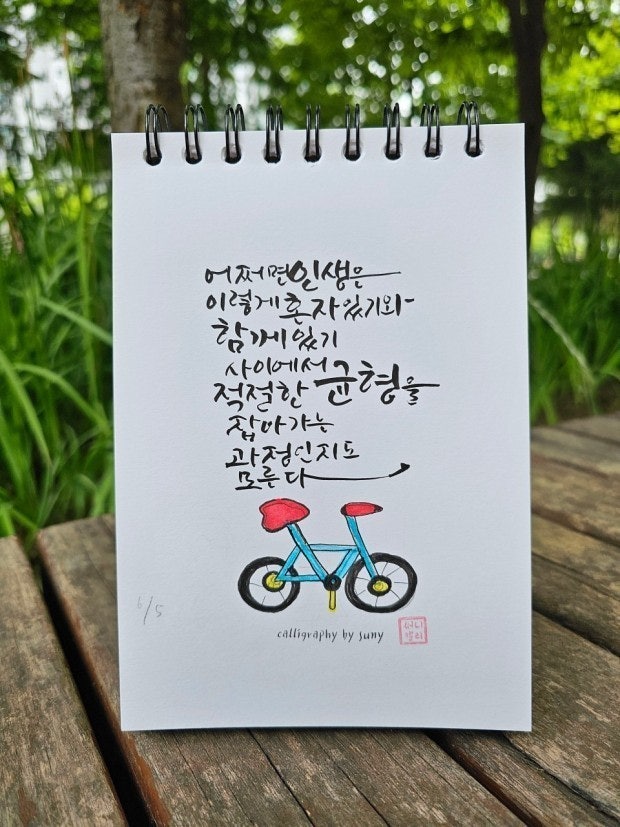 어쩌면 인생은
이렇게 혼자 있기와
함께 있기
사이에서
적절한 균형을
잡아가는
과정인지도
모른다
6/5
calligraphy by suny
써니
캘리